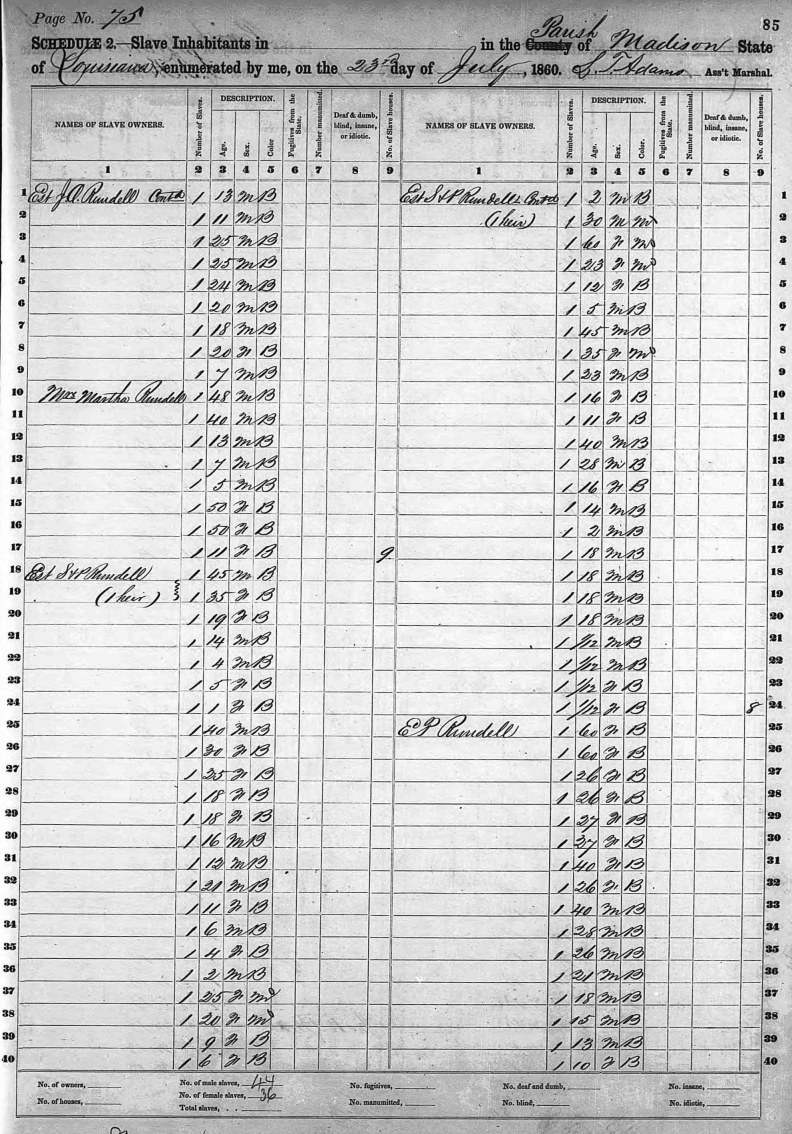 Page No. 75
85
SCHEDULE 2.—Slave Inhabitants in in the County Parish of Madison State
of Louisiana, enumerated by me, on the 23rd day of July, 1860. S. T. Adams Ass't Marshal.
NAMES OF SLAVE OWNERS. Number of Slaves. DESCRIPTION. Age. Sex. Color Fugitives from the State. Number manumitted. Deaf & dumb, blind, insane, or idiotic. No. of Slave houses.
1 2 3 4 5 6 7 8 9
1 Est J. A. Rundell Cont'd 1 13 m B
2 1 11 m B
3 1 25 m B
4 1 25 m B
5 1 24 m B
6 1 20 m B
7 1 18 m B
8 1 20 F B
9 1 7 m B
10 Mrs Martha Rundell 1 48 m B
11 1 40 m B
12 1 13 m B
13 1 7 m B
14 1 5 m B
15 1 50 F B
16 1 50 F B
17 1 11 F B 9
18 Est S & P Rundell 1 45 m B
19 (1 heir) 1 35 F B
20 1 19 F B
21 1 14 m B
22 1 4 m B
23 1 5 F B
24 1 1 F B
25 1 40 m B
26 1 30 F B
27 1 25 F B
28 1 18 F B
29 1 18 F B
30 1 16 m B
31 1 12 m B
32 1 21 m B
33 1 11 F B
34 1 6 m B
35 1 4 F B
36 1 2 m B
37 1 25 F mo
38 1 20 F mo
39 1 9 F B
40 1 6 F B
NAMES OF SLAVE OWNERS. Number of Slaves. DESCRIPTION. Age. Sex. Color. Fugitives from the State. Number manumitted. Deaf & dumb, blind, insane, or idiotic. No. of Slave houses.
1 2 3 4 5 6 7 8 9
Est S & P Rundell Cont'd 1 2 m B 1
(1 heir) 1 30 m mo 2
1 60 F mo 3
1 23 F mo 4
1 12 F B 5
1 5 m B 6
1 45 m B 7
1 35 F mo 8
1 23 m B 9
1 16 F B 10
1 11 F B 11
1 40 m B 12
1 28 m B 13
1 16 F B 14
1 14 m B 15
1 2 m B 16
1 18 m B 17
1 18 m B 18
1 18 m B 19
1 18 m B 20
1 1/12 m B 21
1 1/12 m B 22
1 1/12 F B 23
1 1/12 F B 8 24
E P Rundell 1 60 F B 25
1 60 F B 26
1 26 F B 27
1 26 F B 28
1 27 F B 29
1 37 F B 30
1 40 F B 31
1 26 F B 32
1 40 m B 33
1 28 m B 34
1 26 m B 35
1 21 m B 36
1 18 m B 37
1 15 m B 38
1 13 m B 39
1 10 F B 40
No. of owners, No. of male slaves, 44 No. fugitives, No. deaf and dumb, No. insane,
No. of houses, No. of female slaves, 36 No. manumitted, No. blind, No. idiotic,
Total slaves,